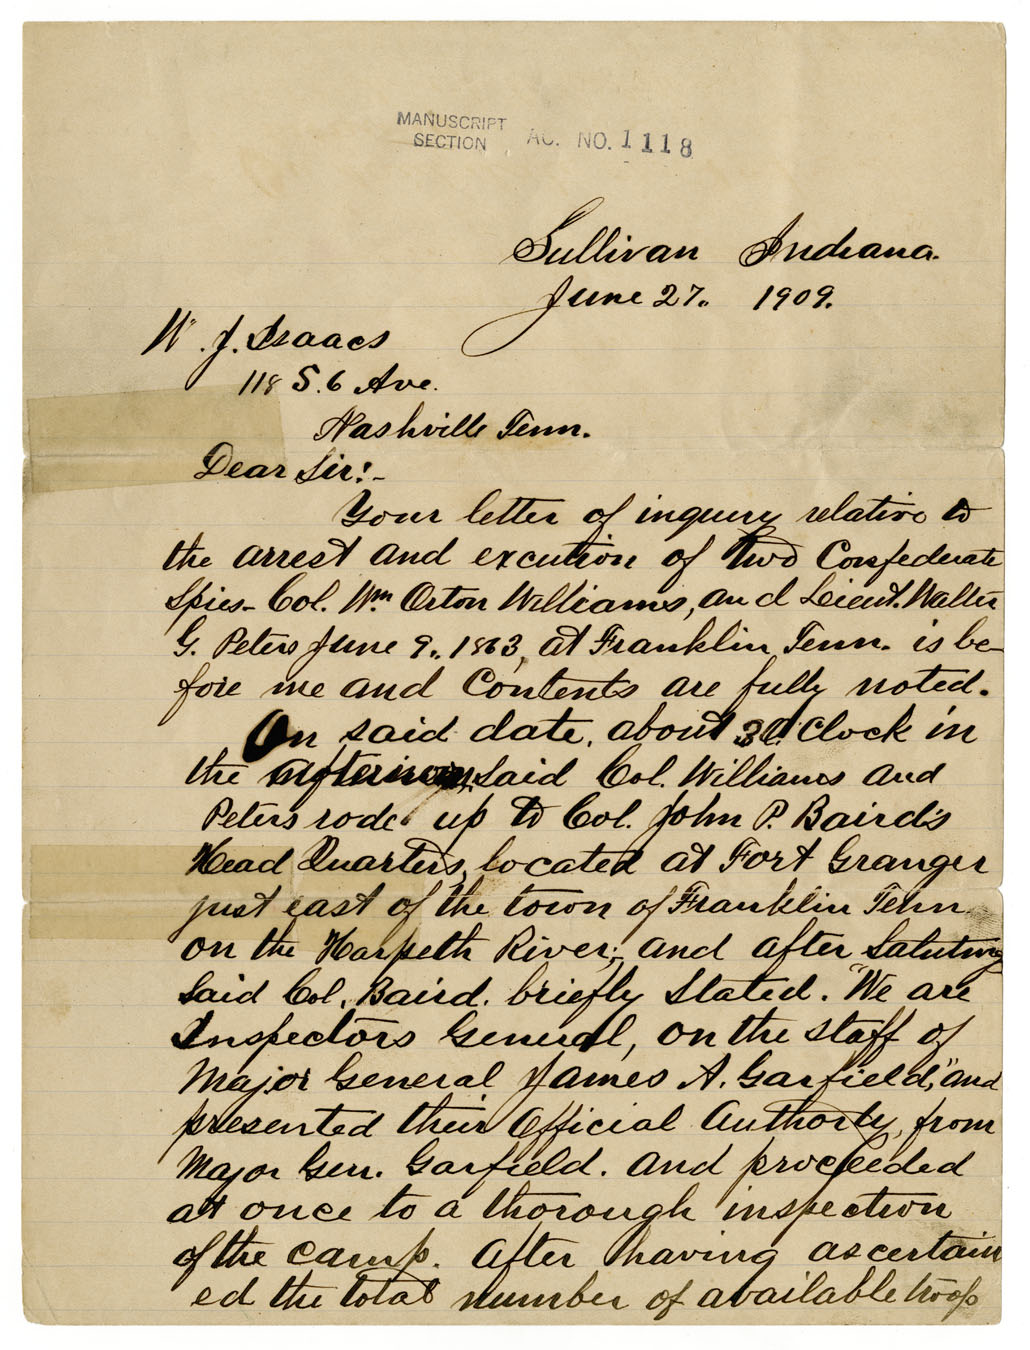 MANUSCRIPT
SECTION AC. NO. 1118
Sullivan Indiana.
June 27. 1909.
W. J. Isaacs
118 S. 6 Ave.
Nashville Tenn.
Dear Sir:-
Your letter of inquery relative to
the arrest and excution of two Confederate
Spies- Col. Wm Orton Williams, and Lieut. Walter
G. Peters June 9. 1863, at Franklin Tenn. is be-
fore me and Contents are fully noted.
On said date, about 3 O'Clock in
the afternoon, said Col. Williams and
Peters rode up to Col. John P. Baird's
Head Quarters, located at Fort Granger
just east of the town of Franklin Tenn
on the Harpeth River; and after Saluting
Said Col. Baird. briefly Stated. "We are
Inspectors General, on the staff of
Major General James A. Garfield," and
presented their Official Authority, from
Major Gen. Garfield. and proceeded
at once to a thorough inspection
of the camp. After having ascertain
ed the total number of available troops